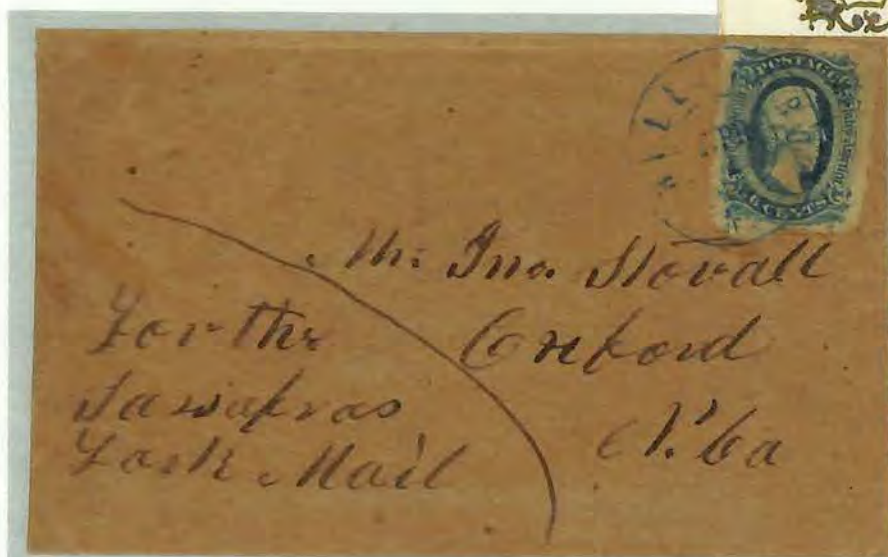 POSTAGE
CENTS
Mr. Jno. Stovall
Oxford
N. Ca
For the
Sassafras
Fork Mail